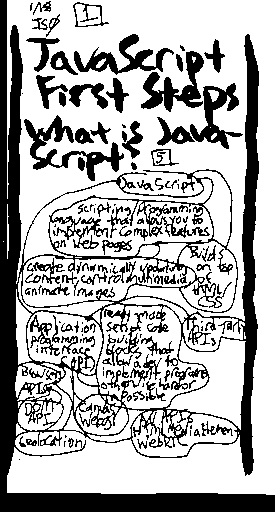 1/18
JS∅
1
JavaScript
First Steps
What is Java-
Script?
5
JavaScript
scripting/programming
language that allows you to
implement complex features
on web pages
create dynamically updating
content, control multimedia,
animate images
Builds
on top
of
HTML/
CSS
Application
programming
interface
(API)
ready made
sets of code
building
blocks that
allow a dev to
implement programs
otherwise hard or
impossible
Third party
APIs
Browser
APIs
DOM
API
Geolocation
Canvas
WebGL
HTMLMediaElement
WebRTC